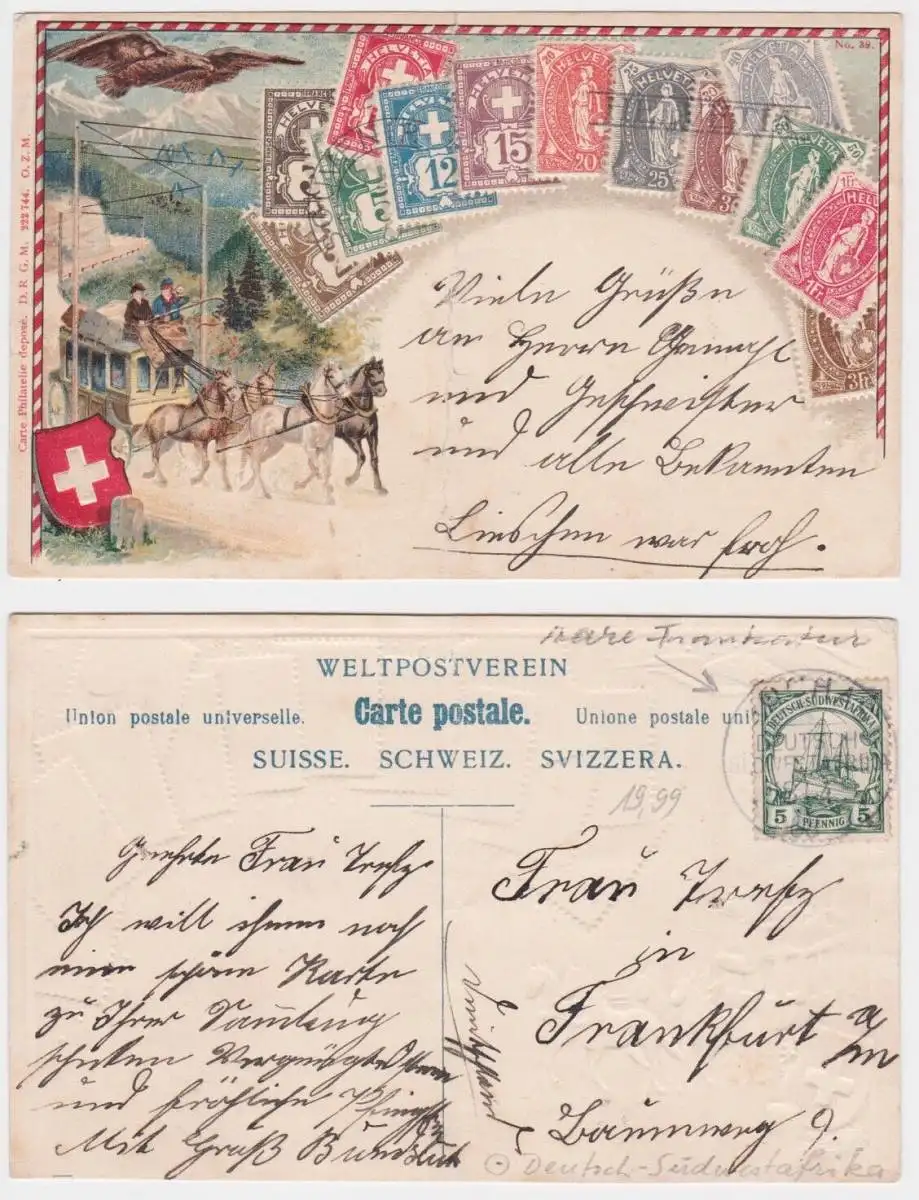 No. 39.
Carte Philatelie deposé. D. R. G. M. 222 744. O. Z. M.
HELVETIA
HELVETIA
HELVETIA
HELVETIA
HELVETIA
3
5
12
15
20
25
40
50
1 Fr.
3 Fr.
Viele Grüße
an Herrn Gemahl
und Geschwister
und alle Bekannten
Lieschen war froh.
rare Frankatur
WELTPOSTVEREIN
Union postale universelle. Carte postale. Unione postale uni
SUISSE. SCHWEIZ. SVIZZERA.
DEUTSCH-SÜDWESTAFRIKA
5 PFENNIG 5
19,99
Geehrte Frau
Ich will ihnen noch
eine schöne Karte
zu Ihrer Sammlung
schicken
und fröhliche Pfingsten
Mit Gruß
Frau
in
Frankfurt a/m
Baumweg 9.
Deutsch-Südwestafrika